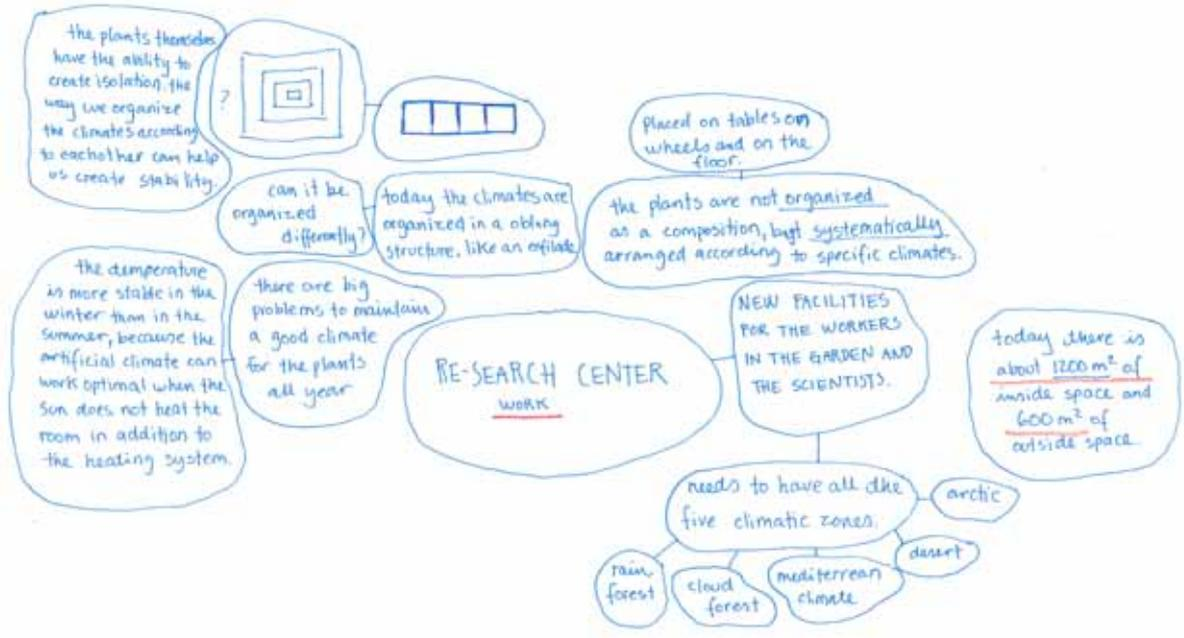 the plants themselves
have the ability to
create isolation. the
way we organize
the climates according
to eachother can help
us create stability.
?
can it be
organized
differently?
today the climates are
organized in a oblong
structure, like an enfilade
placed on tables on
wheels and on the
floor.
the plants are not organized
as a composition, but systematically
arranged according to specific climates.
the temperature
is more stable in the
winter than in the
summer, because the
artificial climate can
work optimal when the
sun does not heat the
room in addition to
the heating system.
there are big
problems to maintain
a good climate
for the plants
all year
RE-SEARCH CENTER
WORK
NEW FACILITIES
FOR THE WORKERS
IN THE GARDEN AND
THE SCIENTISTS.
today there is
about 1200 m² of
inside space and
600 m² of
outside space
needs to have all the
five climatic zones.
arctic
desert
mediterrean
climate
cloud
forest
rain
forest